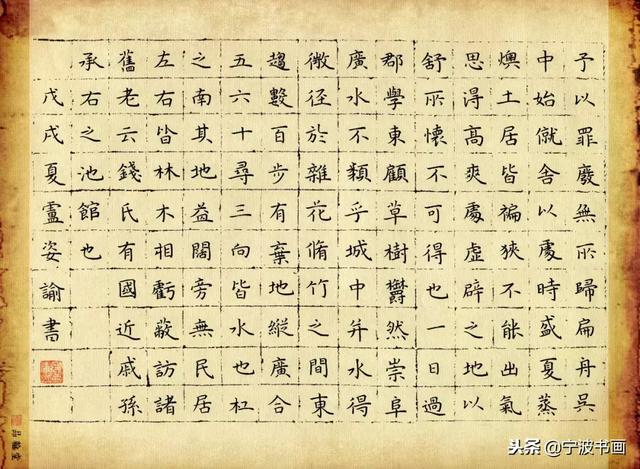 予以罪廢無所歸扁舟吳
中始僦舍以處時盛夏蒸
燠土居皆褊狹不能出氣
思得高爽處虛辟之地以
舒所懷不可得也一日過
郡學東顧草樹鬱然崇阜
廣水不類乎城中并水得
微徑於雜花脩竹之間東
趨數百步有棄地縱廣合
五六十尋三向皆水也杠
之南其地益闊旁無民居
左右皆林木相虧蔽訪諸
舊老云錢氏有國近戚孫
承右之池館也
戊戌夏盧姿諭書
品翰堂
头条 @宁波书画